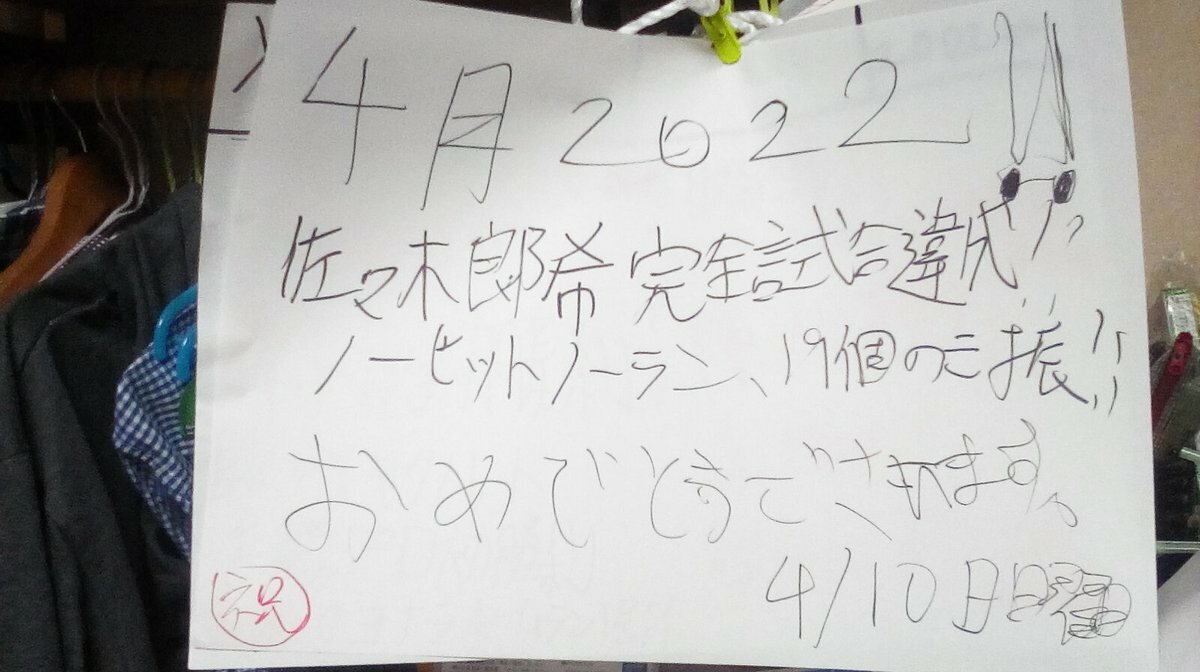 4月2022!!
佐々木郎希完全試合違成!!
ノーヒットノーラン、19個の三振!!
おめでとうございます。
祝
4/10日日曜